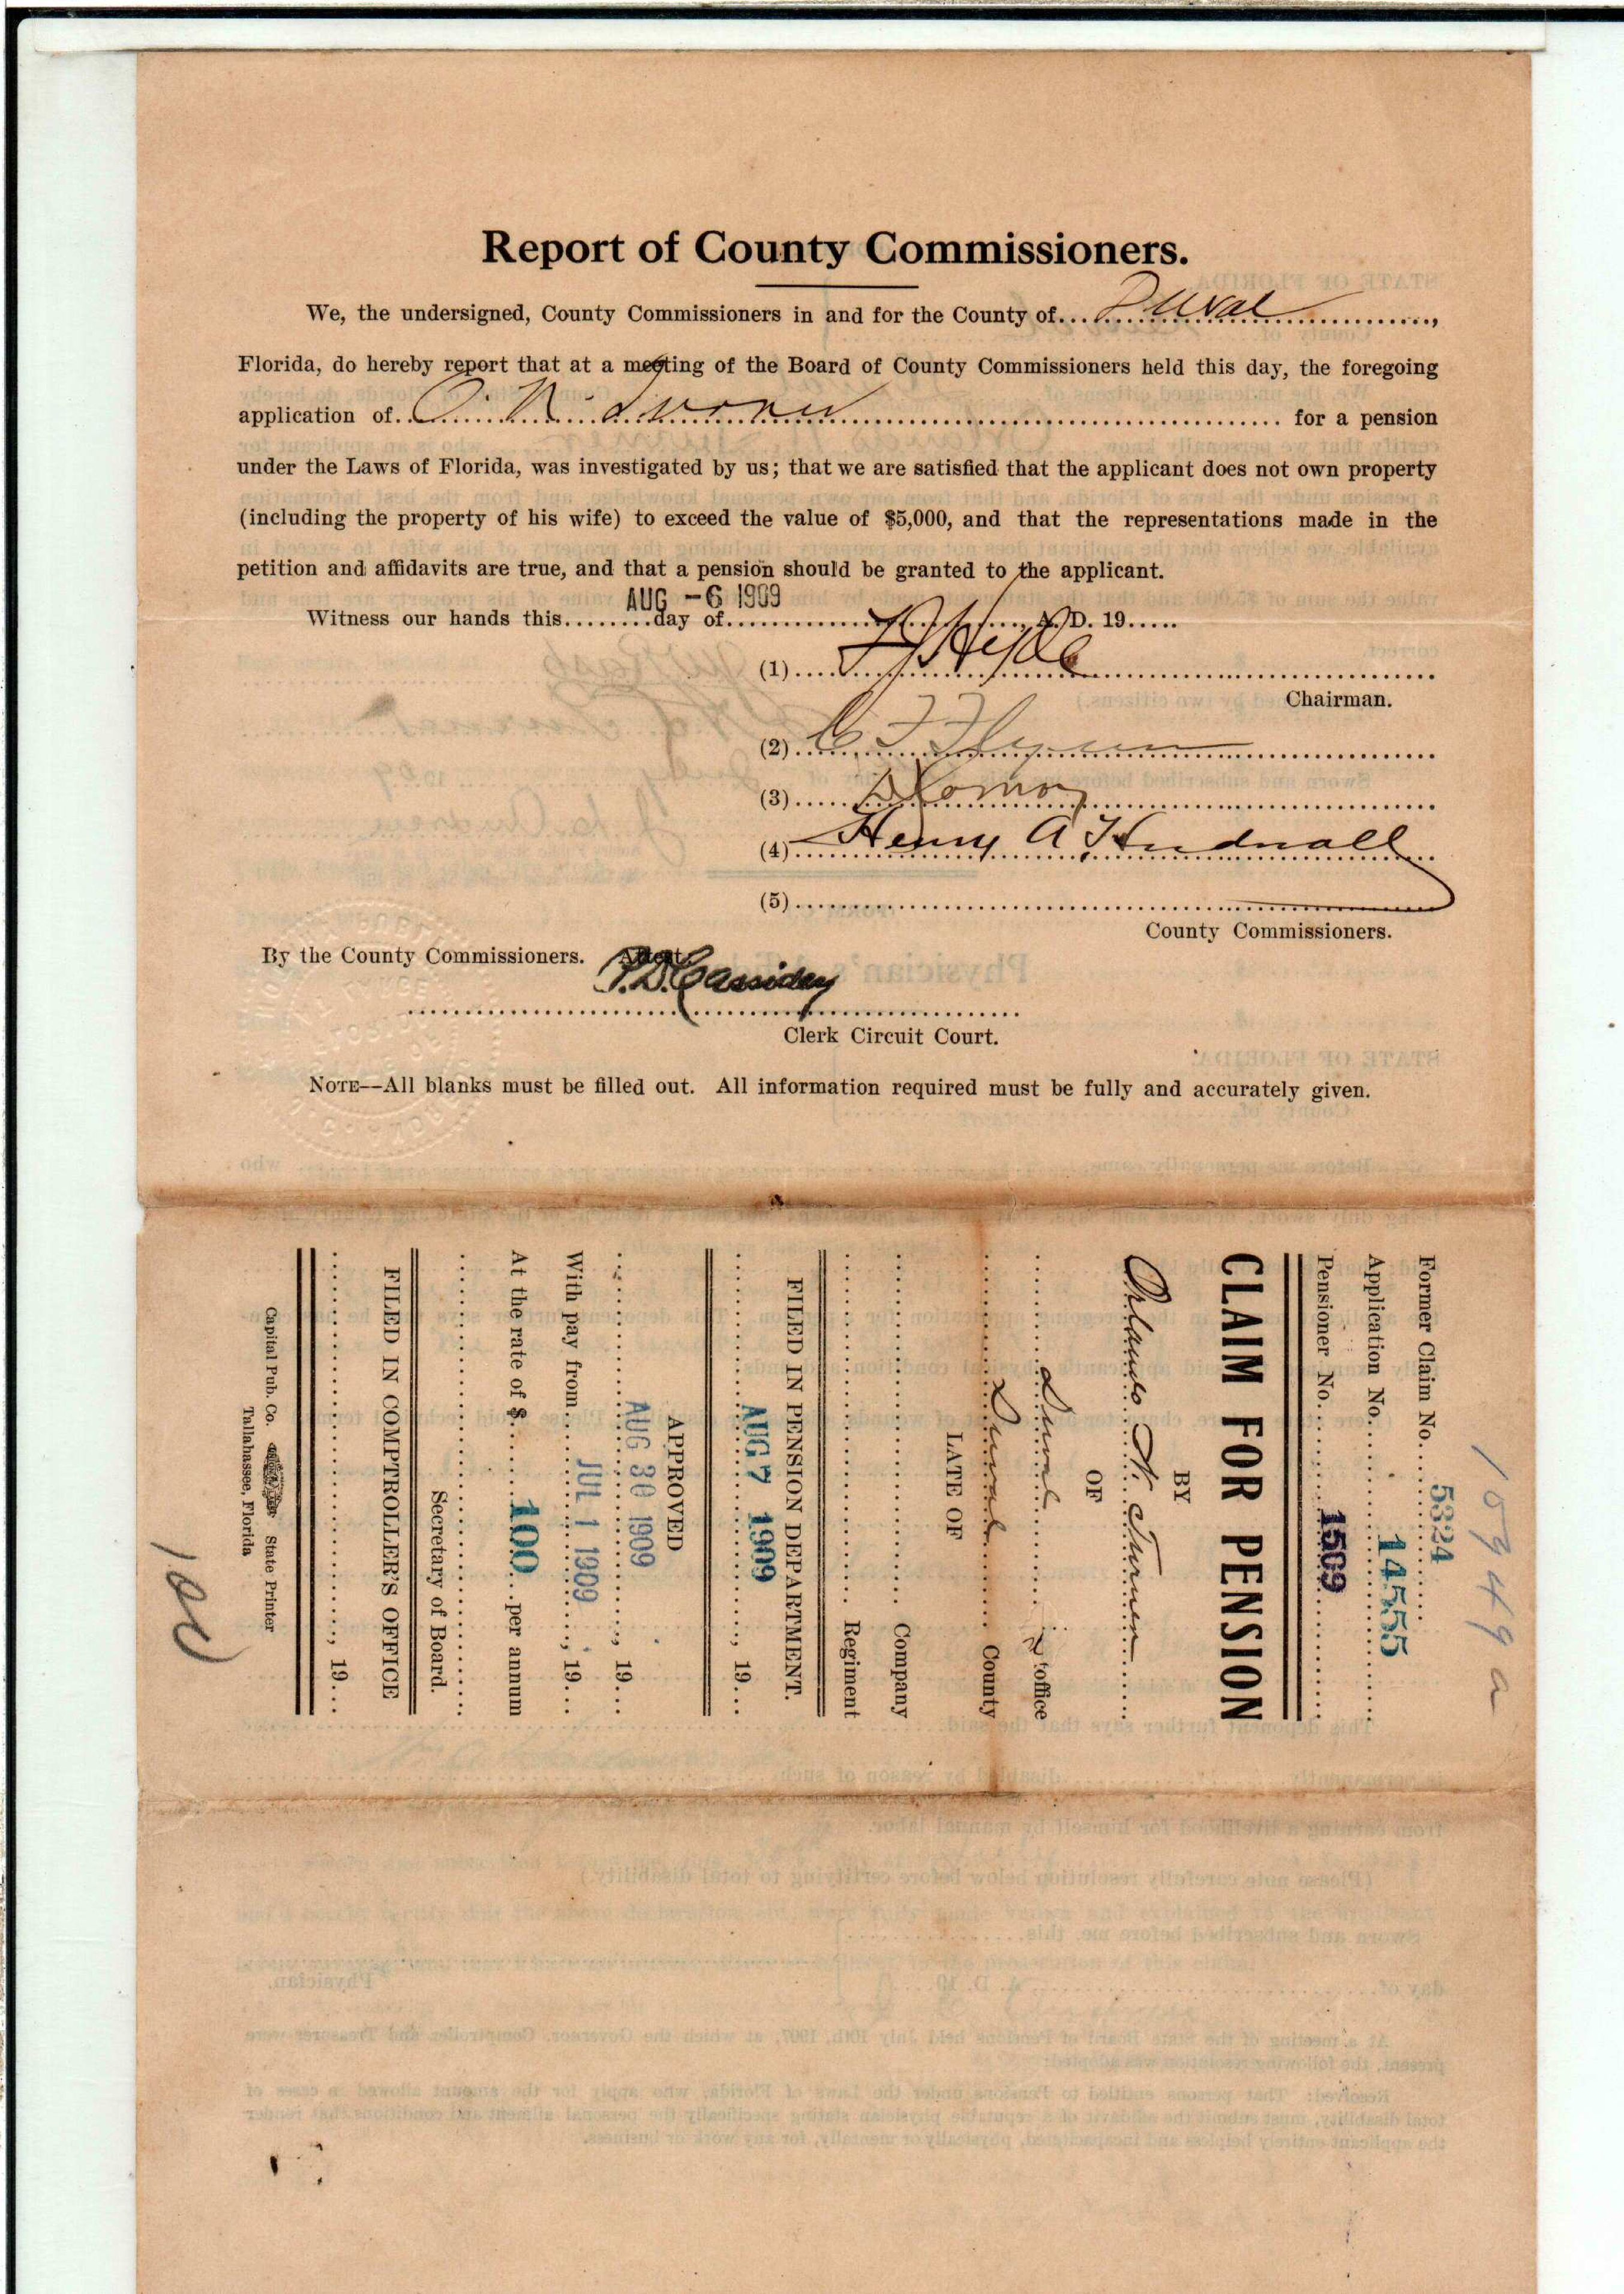 Report of County Commissioners.
We, the undersigned, County Commissioners in and for the County of... Duval ...,
Florida, do hereby report that at a meeting of the Board of County Commissioners held this day, the foregoing
application of.. O. N. ... for a pension
under the Laws of Florida, was investigated by us; that we are satisfied that the applicant does not own property
(including the property of his wife) to exceed the value of $5,000, and that the representations made in the
petition and affidavits are true, and that a pension should be granted to the applicant.
AUG -6 1909
Witness our hands this........day of............, A. D. 19.....
(1).... Hyde
Chairman.
(2)... C F
(3).....
(4) Henry A Hudnall
(5)
County Commissioners.
By the County Commissioners. Attest.
P.D. Cassidey
Clerk Circuit Court.
NOTE--All blanks must be filled out. All information required must be fully and accurately given.
10949 a
Former Claim No. 5324
Application No. 14555
Pensioner No. 1509
CLAIM FOR PENSION
BY
Orlando N. Turner
OF
Duval P. office
Duval County
LATE OF
Company
Regiment
FILED IN PENSION DEPARTMENT.
AUG 7 1909, 19...
APPROVED
AUG 30 1909, 19...
With pay from JUL 1 1909, 19...
At the rate of $ 100 per annum
Secretary of Board.
FILED IN COMPTROLLER'S OFFICE
, 19...
Capital Pub. Co. State Printer
Tallahassee, Florida
100